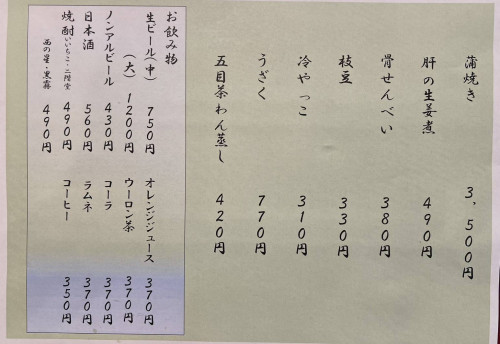 蒲焼き 3,500円
肝の生姜煮 490円
骨せんべい 380円
枝豆 330円
冷やっこ 310円
うざく 770円
五目茶わん蒸し 420円
お飲み物
生ビール(中) 750円
(大) 1200円
ノンアルビール 430円
日本酒 560円
焼酎 いいちこ・二階堂 490円
西の星・黒霧 490円
オレンジジュース 370円
ウーロン茶 370円
コーラ 370円
ラムネ 370円
コーヒー 350円